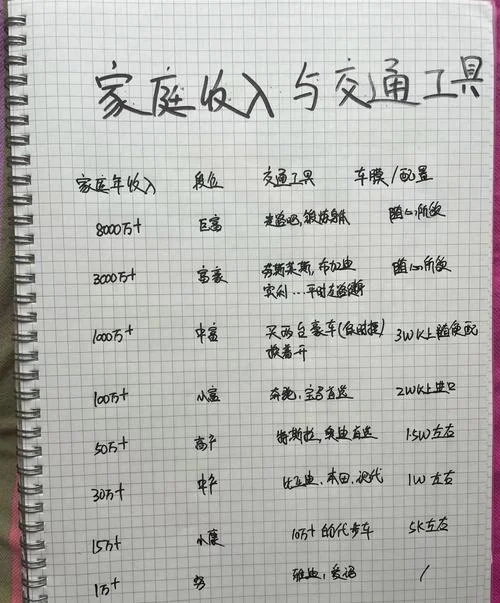 家庭收入与交通工具
家庭年收入 段位 交通工具 车膜/配置
8000万+ 巨富 走路吧,锻炼身体 随心所欲
3000万+ 富豪 劳斯莱斯,布加迪 随心所欲
宾利...平时走路
1000万+ 中富 买两台豪车(保时捷) 3W以上随便配
换着开
100万+ 小富 奔驰、宝马首选 2W以上进口
50万+ 高产 特斯拉,奥迪首选 1.5W左右
30万+ 中产 比亚迪、本田、现代 1W左右
15万+ 小康 10万+的代步车 5K左右
1万+ 穷 雅迪,爱玛 /